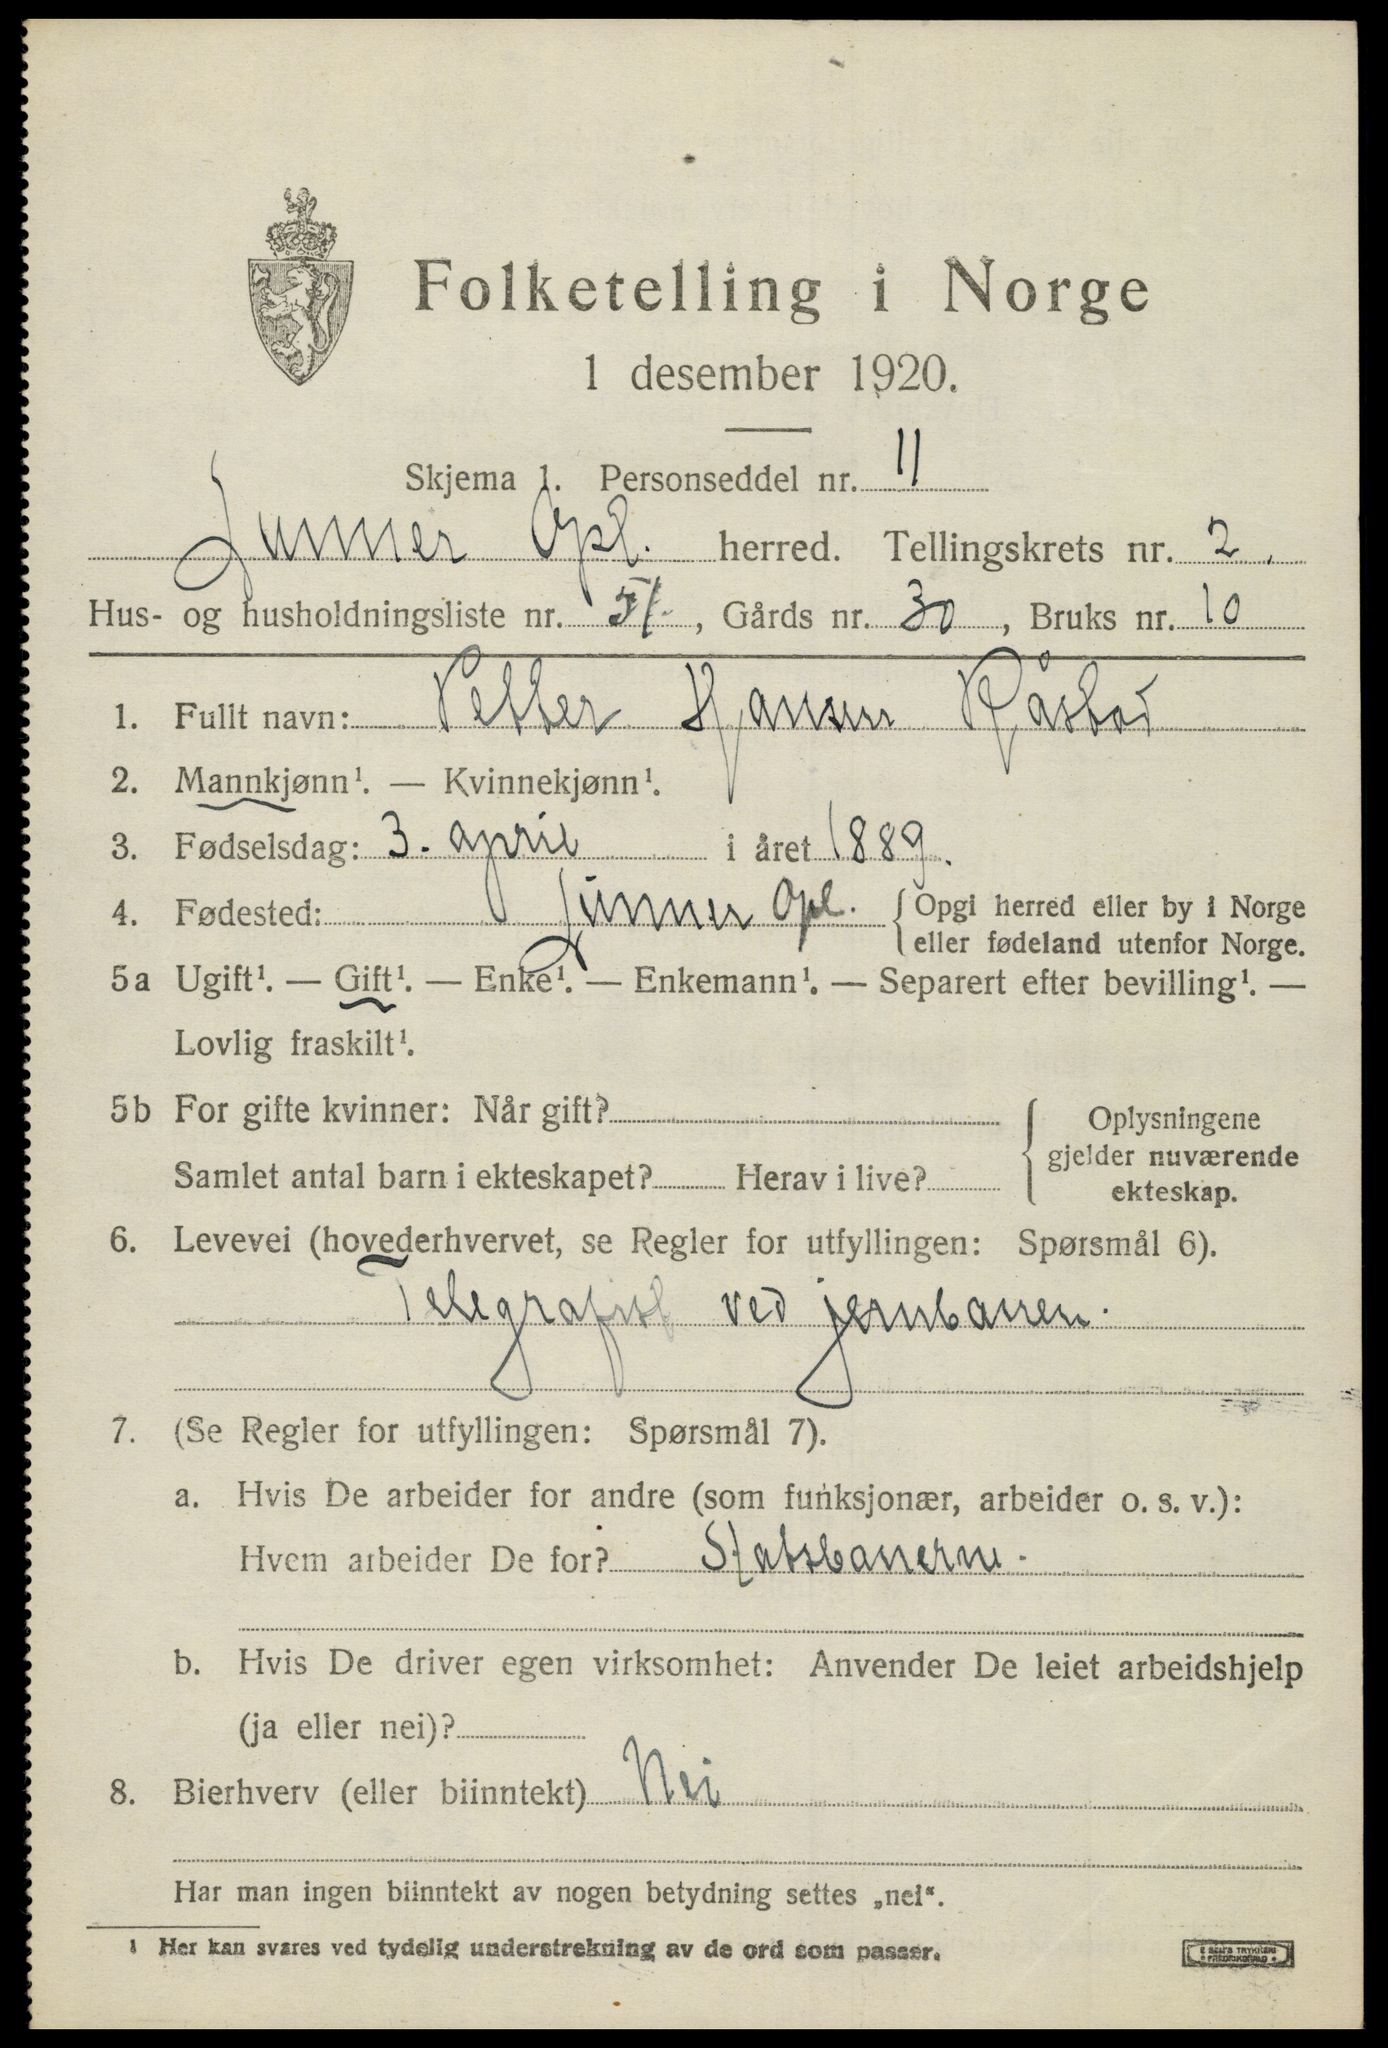 Folketelling i Norge
1 desember 1920.
Skjema 1. Personseddel nr. 11
Lunner Opl. herred. Tellingskrets nr. 2.
Hus- og husholdningsliste nr. 51, Gårds nr. 30, Bruks nr. 10
1. Fullt navn: Petter Hansen Råstad
2. Mannkjønn¹. — Kvinnekjønn¹.
3. Fødselsdag: 3. april i året 1889.
4. Fødested: Lunner Opl. { Opgi herred eller by i Norge
eller fødeland utenfor Norge.
5a Ugift¹. — Gift¹. — Enke¹. — Enkemann¹. — Separert efter bevilling¹. —
Lovlig fraskilt¹.
5b For gifte kvinner: Når gift? { Oplysningene
gjelder nuværende
Samlet antal barn i ekteskapet? Herav i live? ekteskap.
6. Levevei (hovederhvervet, se Regler for utfyllingen: Spørsmål 6).
Telegrafist ved jernbanen.
7. (Se Regler for utfyllingen: Spørsmål 7).
a. Hvis De arbeider for andre (som funksjonær, arbeider o. s. v.):
Hvem arbeider De for? Statsbanerne.
b. Hvis De driver egen virksomhet: Anvender De leiet arbeidshjelp
(ja eller nei)?
8. Bierhverv (eller biinntekt) Nei
Har man ingen biinntekt av nogen betydning settes „nei“.
¹ Her kan svares ved tydelig understrekning av de ord som passer.